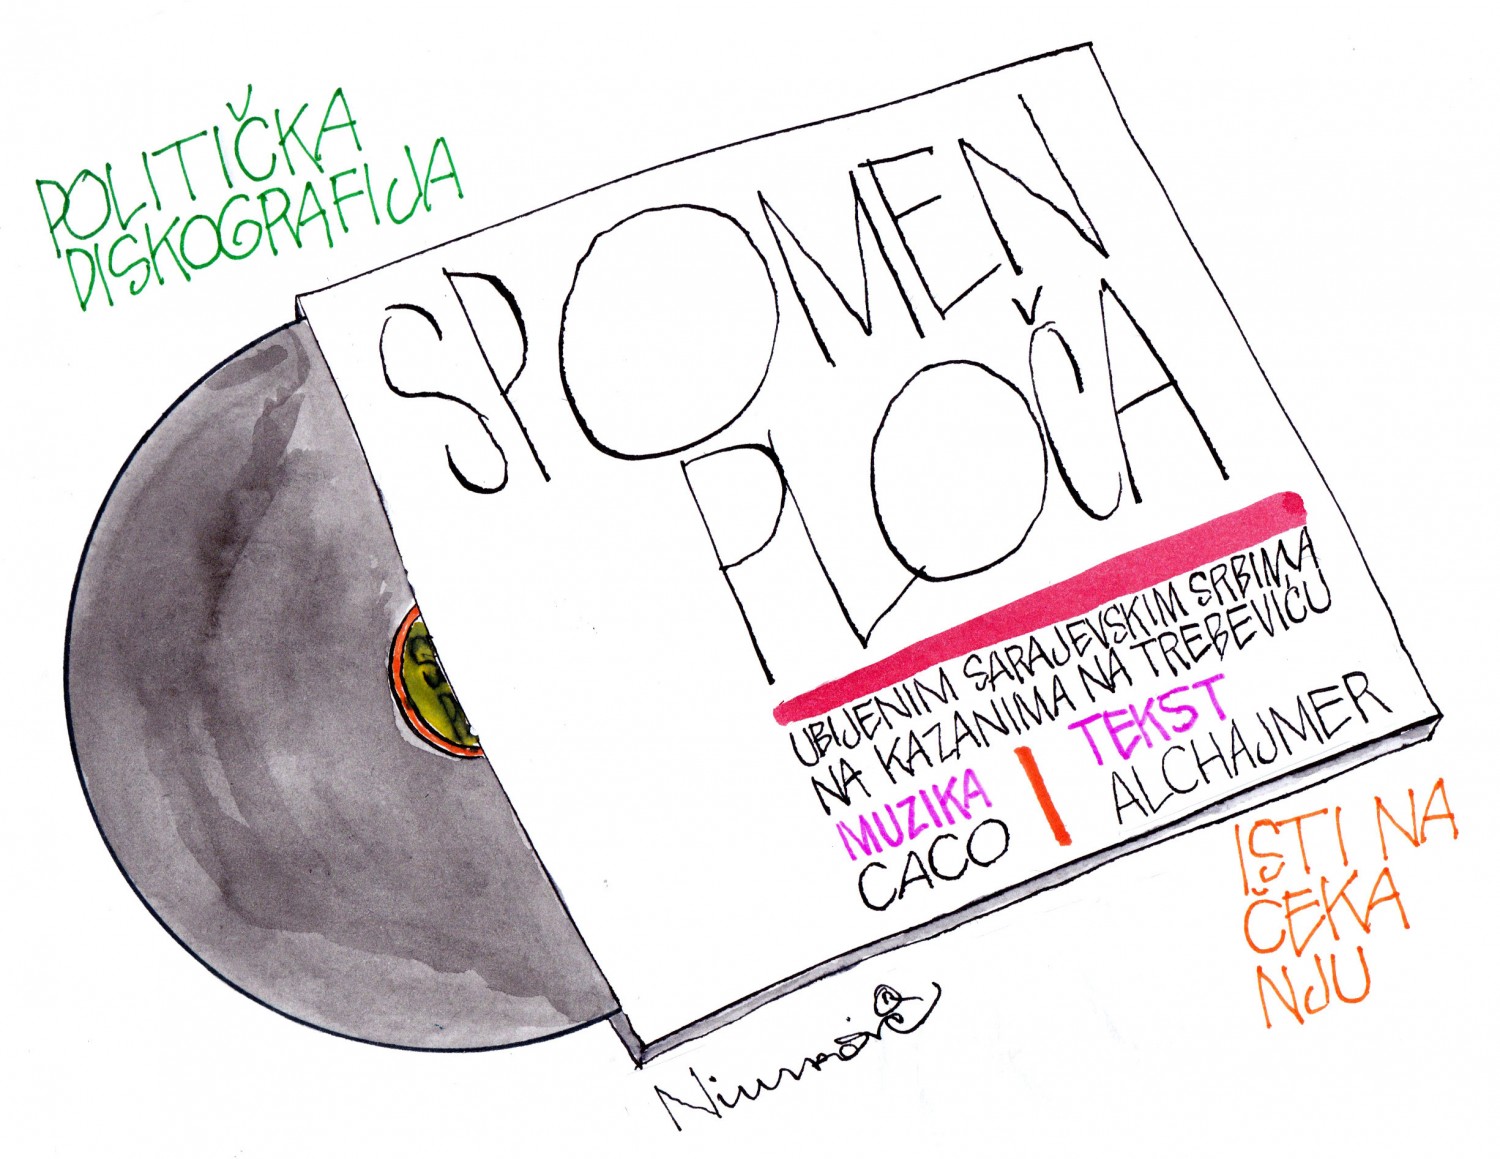 POLITIČKA
DISKOGRAFIJA
SPOMEN
PLOČA
UBIJENIM SARAJEVSKIM SRBIMA
NA KAZANIMA NA TREBEVIĆU
MUZIKA
CACO
TEKST
ALCHAJMER
ISTI NA
ČEKA
NJU